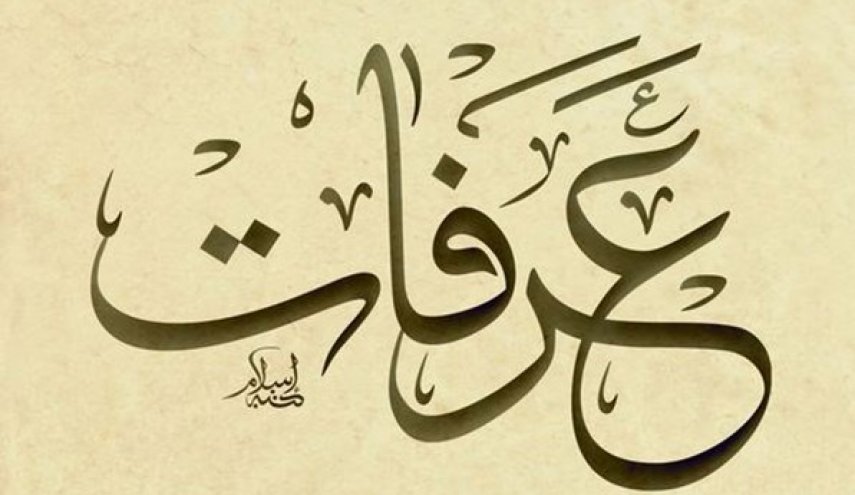 عَرَفَات
كتبه اسلام